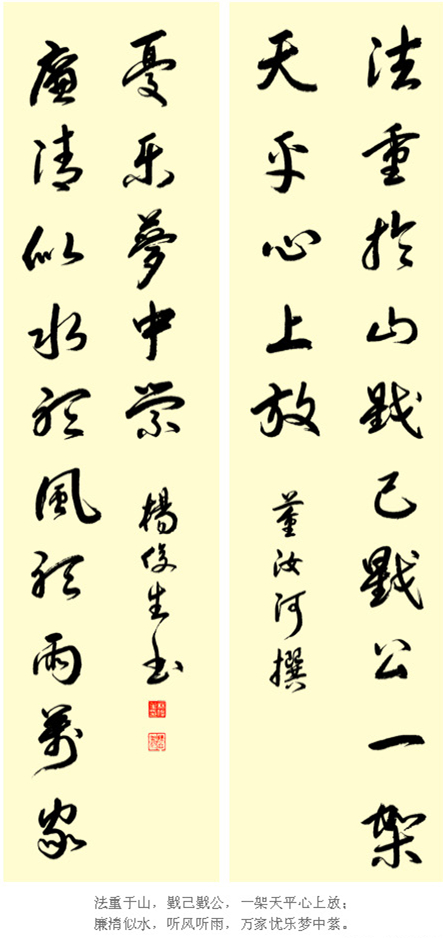 法重於山戥己戥公一架
天平心上放
董汝河撰
廉清似水听風听雨萬家
憂乐夢中萦
楊俊生书
法重于山，戥己戥公，一架天平心上放；
廉清似水，听风听雨，万家忧乐梦中萦。